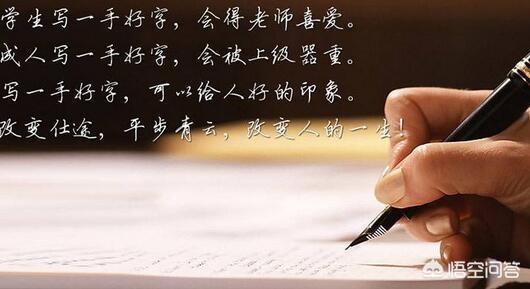 学生写一手好字，会得老师喜爱。
成人写一手好字，会被上级器重。
写一手好字，可以给人好的印象。
改变仕途，平步青云，改变人的一生！
悟空问答